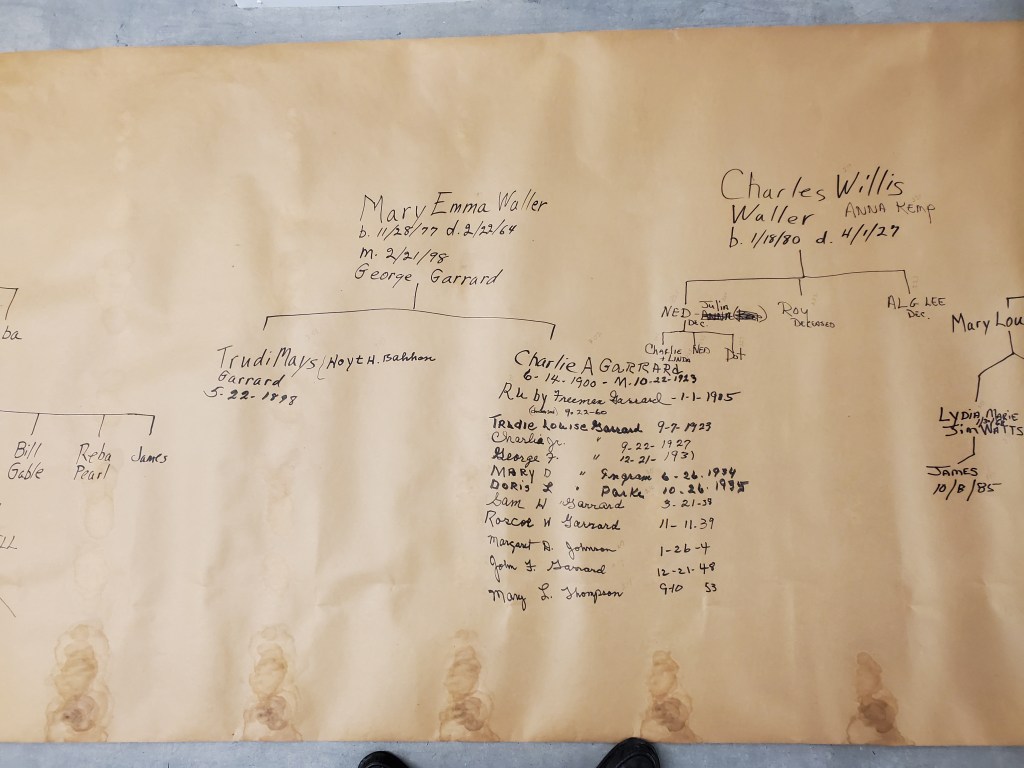 Mary Emma Waller
b. 11/28/77 d. 2/22/64
m. 2/21/98
George Garrard
Trudi Mays / Hoyt H.
Garrard
5-22-1898
Charlie A GARRARD
6-14-1900 - M. 10-22-1923
Ruby Freeman Garrard - 1-1-1905
9-22-60
Trudie Louise Garrard 9-7-1923
Charlie Jr. " 9-22-1927
George F " 12-21-1931
MARY D " Ingram 6-26-1934
DORIS L " Parks 10-26-1935
Sam W Garrard 3-21-38
Roscoe W Garrard 11-11-39
Margaret D. Johnson 1-26-4
John F. Garrard 12-21-48
Mary L. Thompson 9-10 53
Charles Willis
Waller ANNA KEMP
b. 1/18/80 d. 4/1/27
NED - Julia
Dec.
Charlie NED Dot
+ LINDA
Roy
DECEASED
ALG LEE
DEC.
Mary Lou
LYDIA MARIE
Jim WATTS
JAMES
10/8/85
ba
Bill
Gable
Reba
Pearl
James
LL